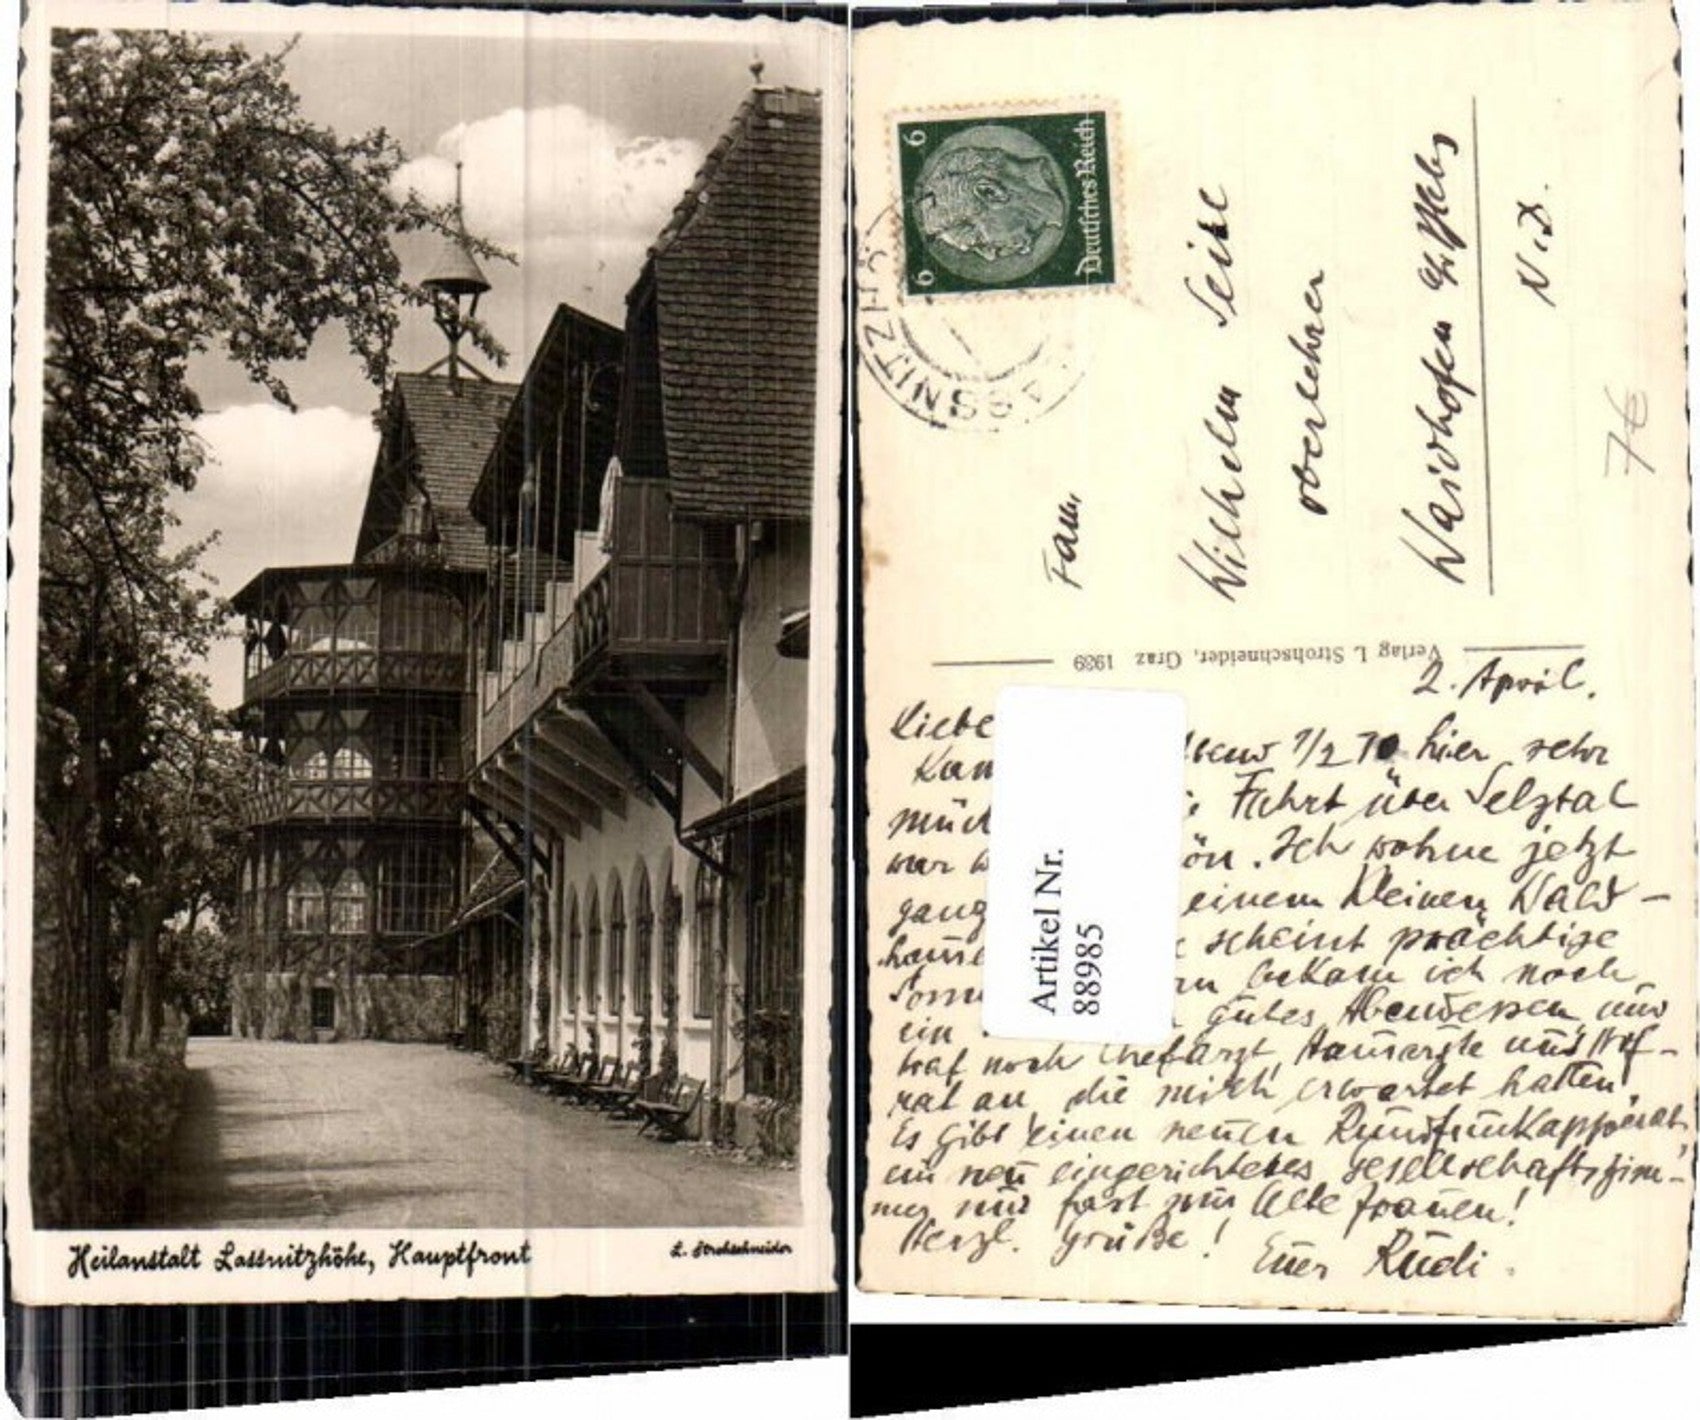 Heilanstalt Lassnitzhöhe, Hauptfront
L. Strohschneider
6 6
Deutsches Reich
LASSNITZHÖ
Fam.
Wilhelm Seidl
Oberlehrer
Waidhofen a/ Ybbs
N.D.
7€
Verlag L. Strohschneider, Graz 1939
Artikel Nr.
88985
2. April.
Liebe
Kam 1/2 10 hier sehr
müd Fahrt über Selztal
war w ön. Ich wohne jetzt
ganz einem kleinen Wald-
hause scheint prächtige
Sonn bekam ich noch
ein gutes Abendessen und
traf noch Chefarzt, Hausärzte und Hof-
rat an die mich erwartet hatten.
Es gibt einen neuen Rundfunkapparat,
ein neu eingerichtetes Gesellschaftszim-
mer und fast nur alte Frauen!
Herzl. Grüße!
Euer Rudi.